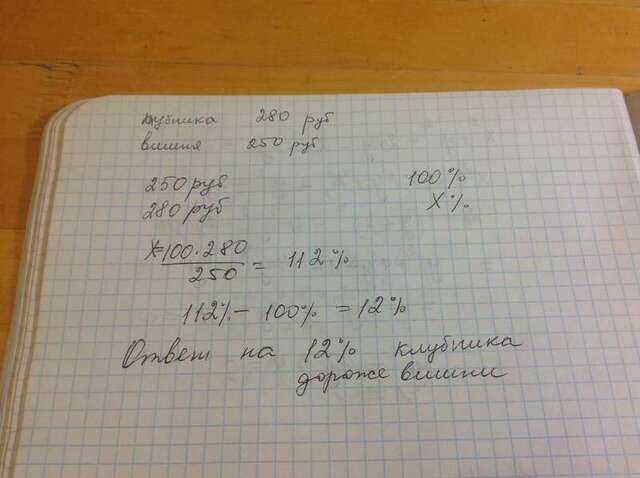 клубника 280 руб
вишня 250 руб
250 руб 100%
280 руб X%
X=100·280/250 = 112%
112% - 100% = 12%
Ответ на 12% клубника
дороже вишни